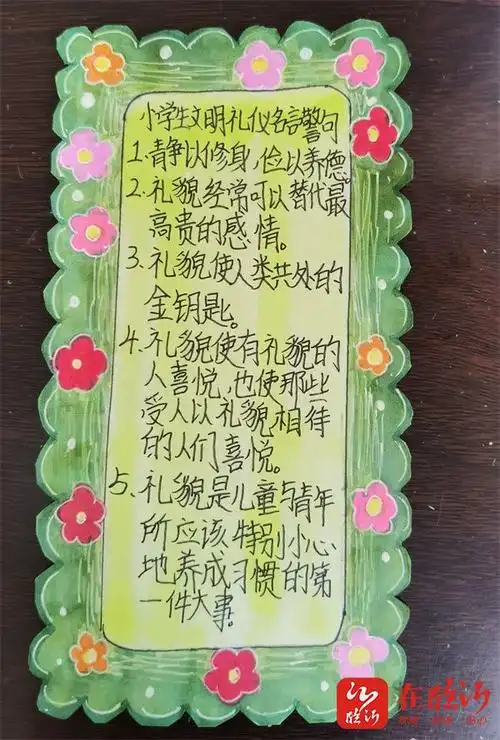 小学生文明礼仪名言警句
1.静以修身,俭以养德。
2.礼貌经常可以替代最
高贵的感情。
3.礼貌使人类共处的
金钥匙。
4.礼貌使有礼貌的
人喜悦,也使那些
受人以礼貌相待
的人们喜悦。
5.礼貌是儿童与青年
所应该特别小心
地养成习惯的第
一件大事。
在临沂